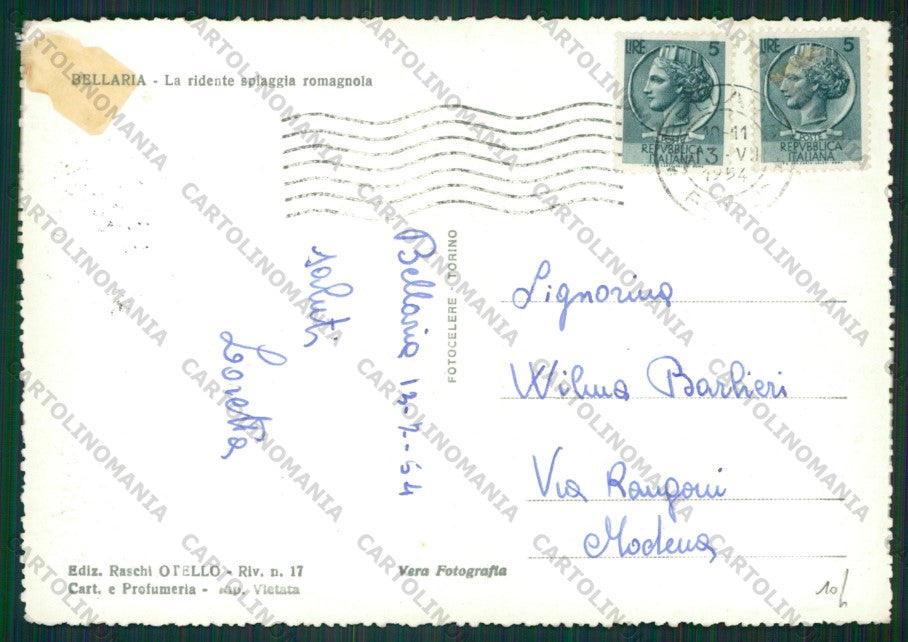 BELLARIA - La ridente spiaggia romagnola
LIRE 5
REPVBBLICA
ITALIANA
LIRE 5
REPVBBLICA
ITALIANA
10-11
13.-V
1954
Bellaria 13-7-54
saluti
Loretta
FOTOCELERE - TORINO
Signorina
Wilma Barbieri
Via Rangoni
Modena
Ediz. Raschi OTELLO - Riv. n. 17
Cart. e Profumeria - Rip. Vietata
Vera Fotografia
10/
CARTOLINOMANIA